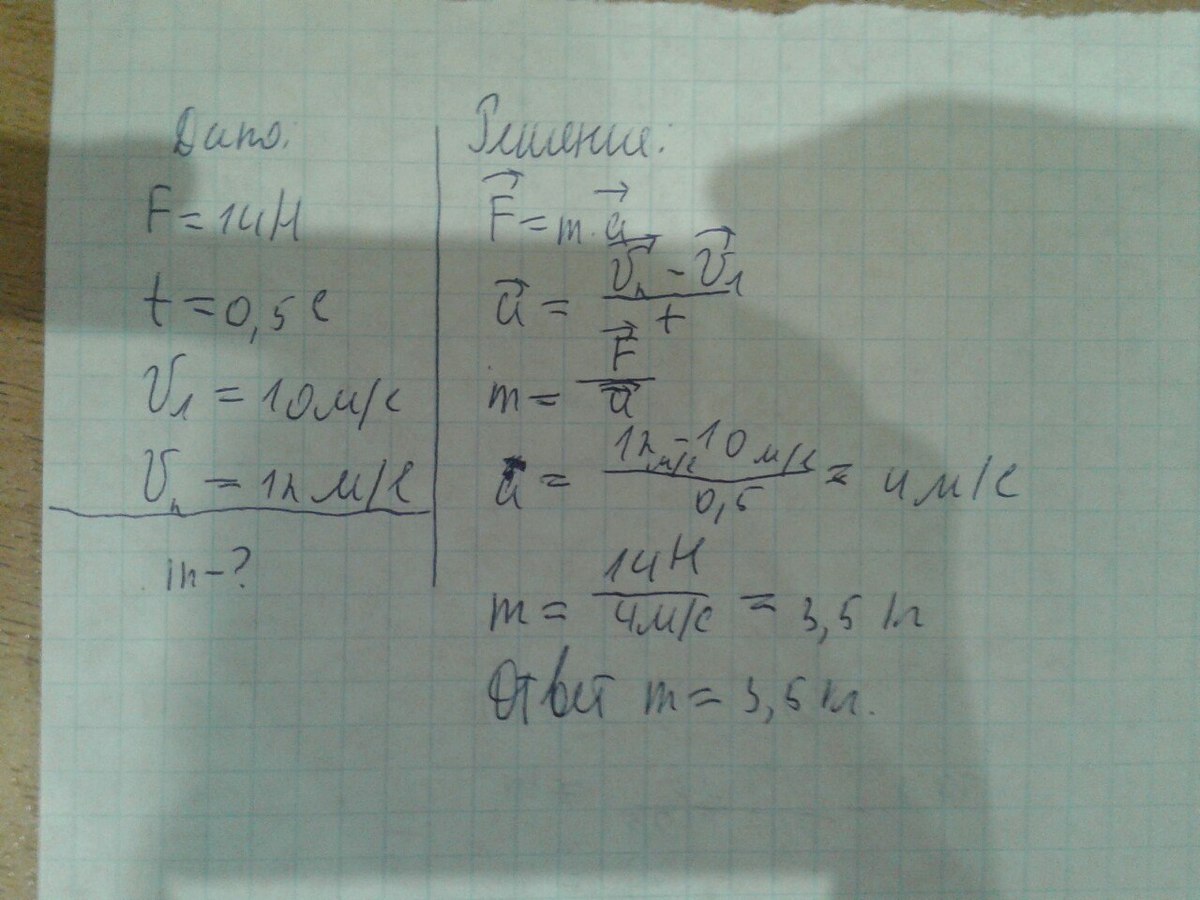 Дано:
F = 14 Н
t = 0,5 с
V₁ = 10 м/с
V₂ = 12 м/с
m - ?
Решение:
F⃗ = m · a⃗
a⃗ = (V⃗₂ - V⃗₁) / t
m = F⃗ / a⃗
a = (12 м/с - 10 м/с) / 0,5 = 4 м/с
m = 14 Н / 4 м/с = 3,5 кг
Ответ m = 3,5 кг.